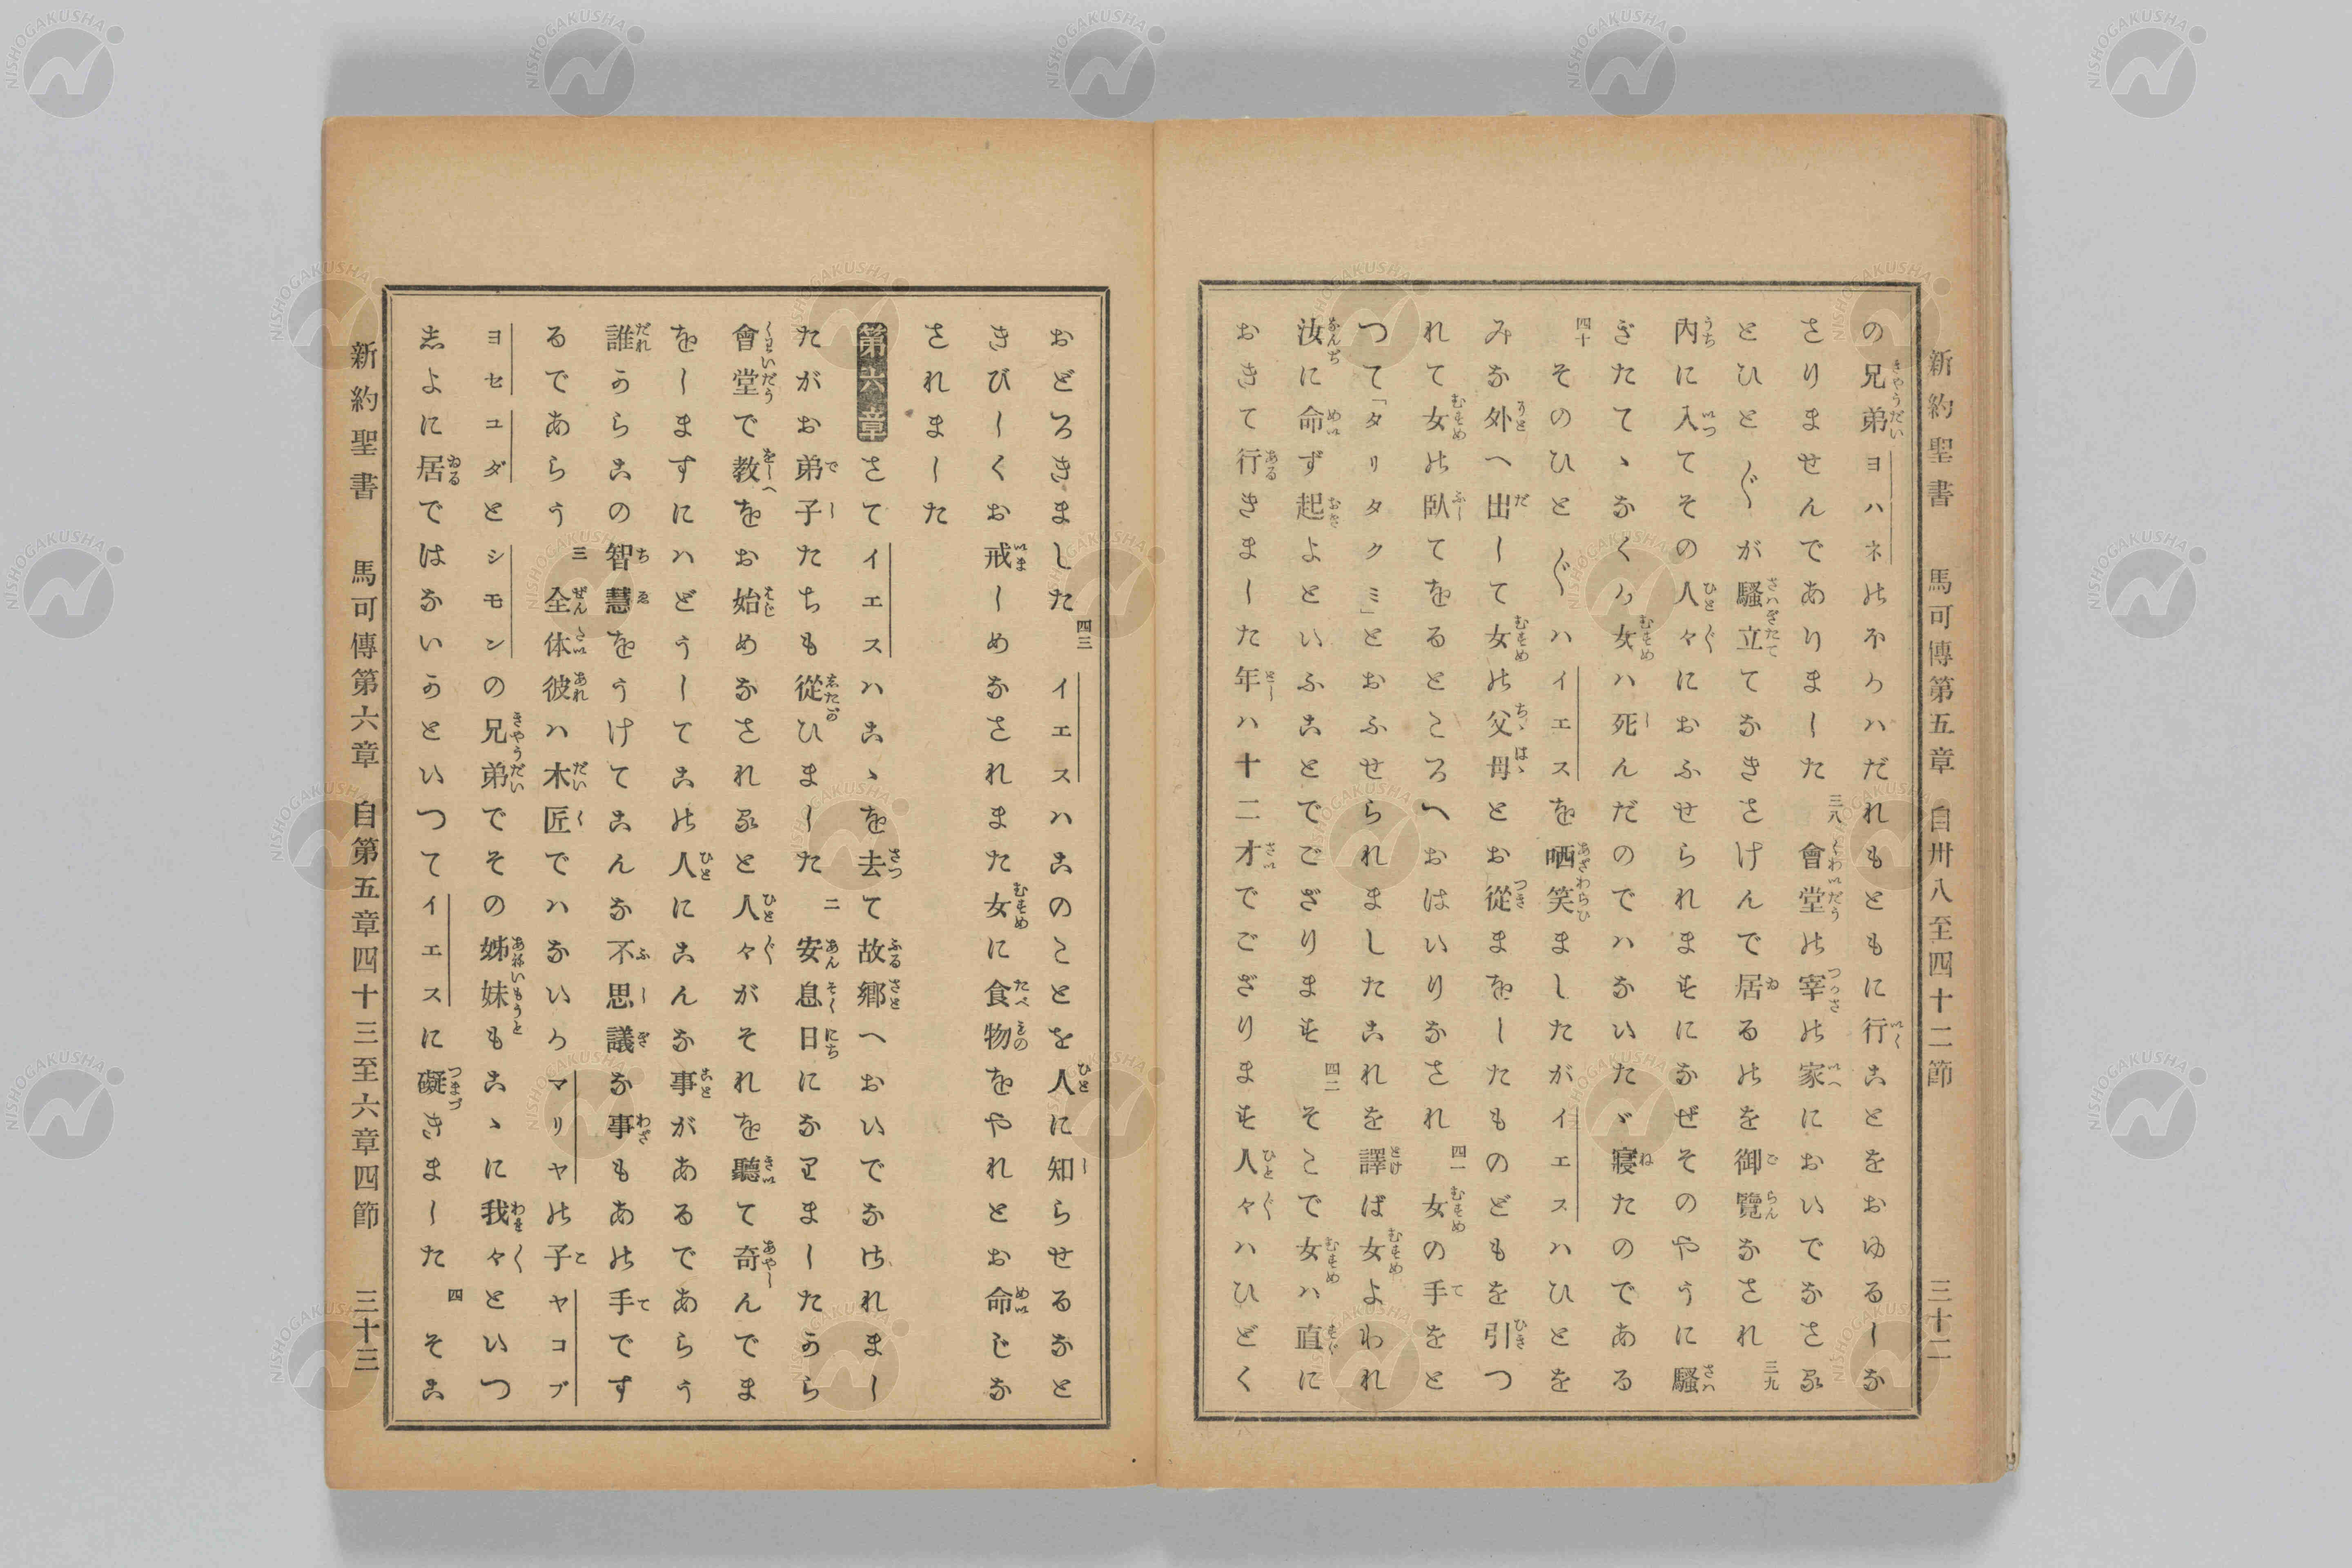 新約聖書 馬可傳第五章 自卅八至四十二節 三十二
の兄弟ヨハネのホカハだれもともに行ことをおゆるしな
さりませんでありました 三八 會堂の宰の家においでなさると
ひと〴〵が騷立てなきさけんで居るのを御覽なされ 三九
内に入てその人々におふせられますになぜそのやうに騷
ぎたてゝなくカ女ハ死んだのでハないたゞ寢たのである
四十 そのひと〴〵ハイエスを哂笑ましたがイエスハひとを
みな外へ出して女の父母とお從まをしたものどもを引つ
れて女の臥てをるところへおはいりなされ 四一 女の手をと
つて「タリタクミ」とおふせられましたこれを譯ば女よわれ
汝に命ず起よといふことでござります 四二 そこで女ハ直に
おきて行きました年ハ十二才でござります人々ハひどく
おどろきました 四三 イエスハこのことを人に知らせるなと
きびしくお戒しめなされまた女に食物をやれとお命じな
されました
第六章 さてイエスハこゝを去て故郷へおいでなければまし
たがお弟子たちも從ひました 二 安息日になりましたから
會堂で教をお始めなされると人々がそれを聽て奇んでま
をしますにハどうしてこの人にこんな事があるであらう
誰からこの智慧をうけてこんな不思議な事もあの手です
るであらう 三 全体彼ハ木匠でハないカマリヤの子ヤコブ
ヨセユダとシモンの兄弟でその姊妹もこゝに我々といつ
しよに居ではないかといつてイエスに礙きました 四 そこ
新約聖書 馬可傳第六章 自第五章四十三至六章四節 三十三
NISHOGAKUSHA